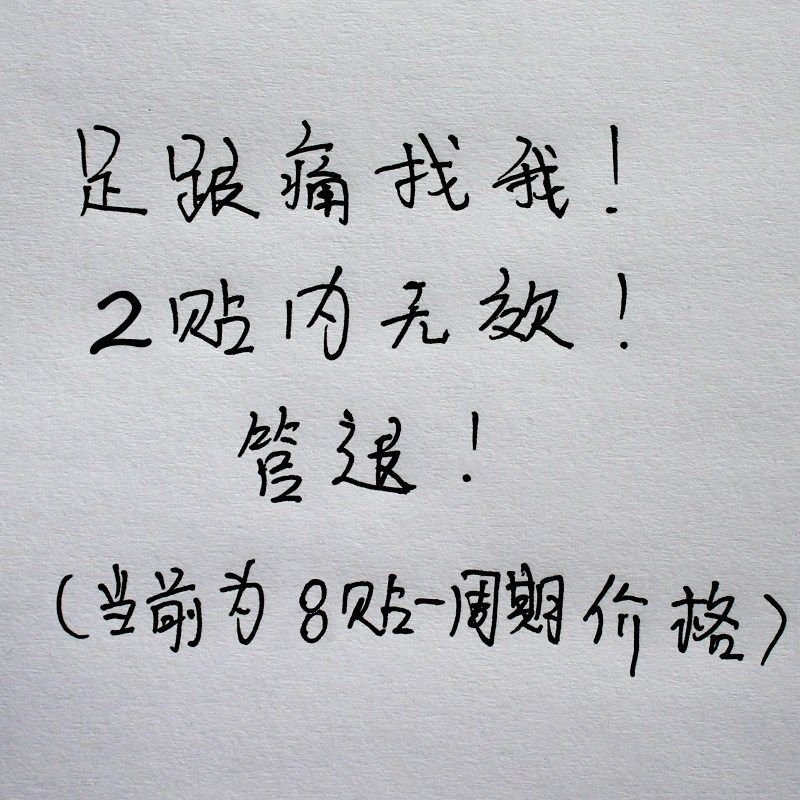 足跟痛找我！
2贴内无效！
管退！
（当前为8贴一周期价格）